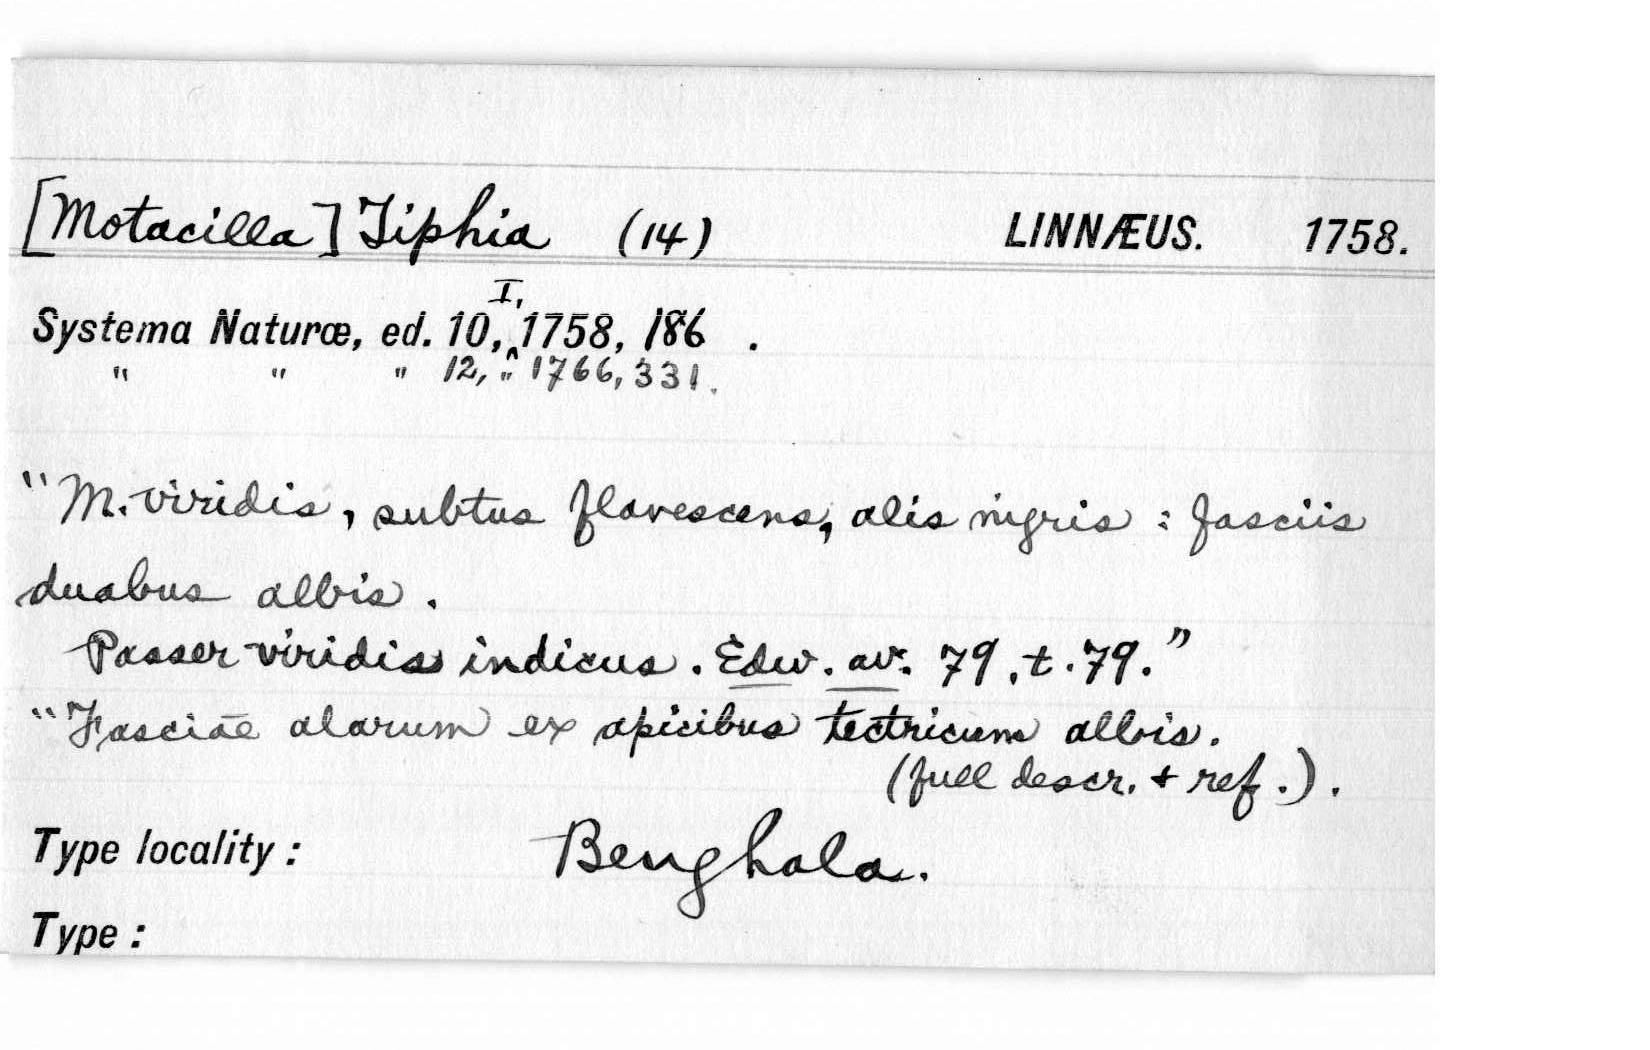 [Motacilla] Tiphia (14) LINNÆUS. 1758.
Systema Naturæ, ed. 10, I, 1758, 186 .
" " " 12, " 1766, 331.
"M. viridis, subtus flavescens, alis nigris : fasciis
duabus albis.
Passer viridis indicus. Edw. av. 79. t. 79."
"Fasciae alarum ex apicibus tectricum albis.
(full descr. + ref.).
Type locality : Benghala.
Type :